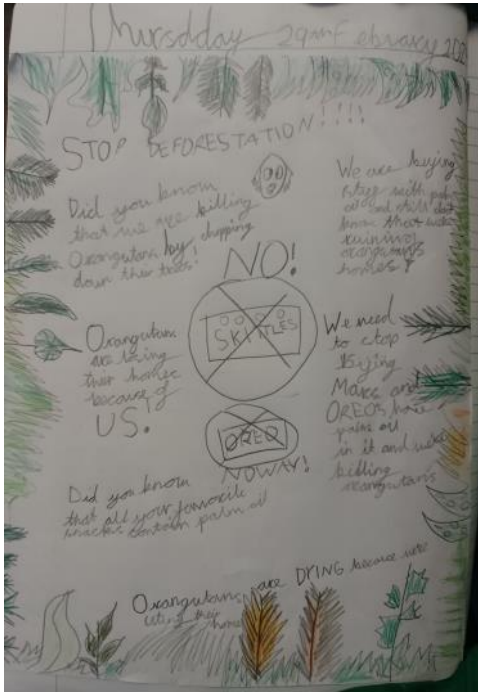 Thursdday 29th February 202
STOP DEFORESTATION!!!!
Did you know
that we are killing
Orangutans by chopping
down their trees!
We are buying
with palm
oil and still dont
know that we're
ruining
orangutans
homes!
NO!
SKITTLES
Orangutans
are losing
their homes
because of
US!
We need
to stop
Buying
Mars and
OREOS have
palm oil
in it and we're
killing
orangutans
OREO
NO WAY!
Did you know
that all your favorite
snacks contain palm oil
Orangutans are DYING because we're
their
home